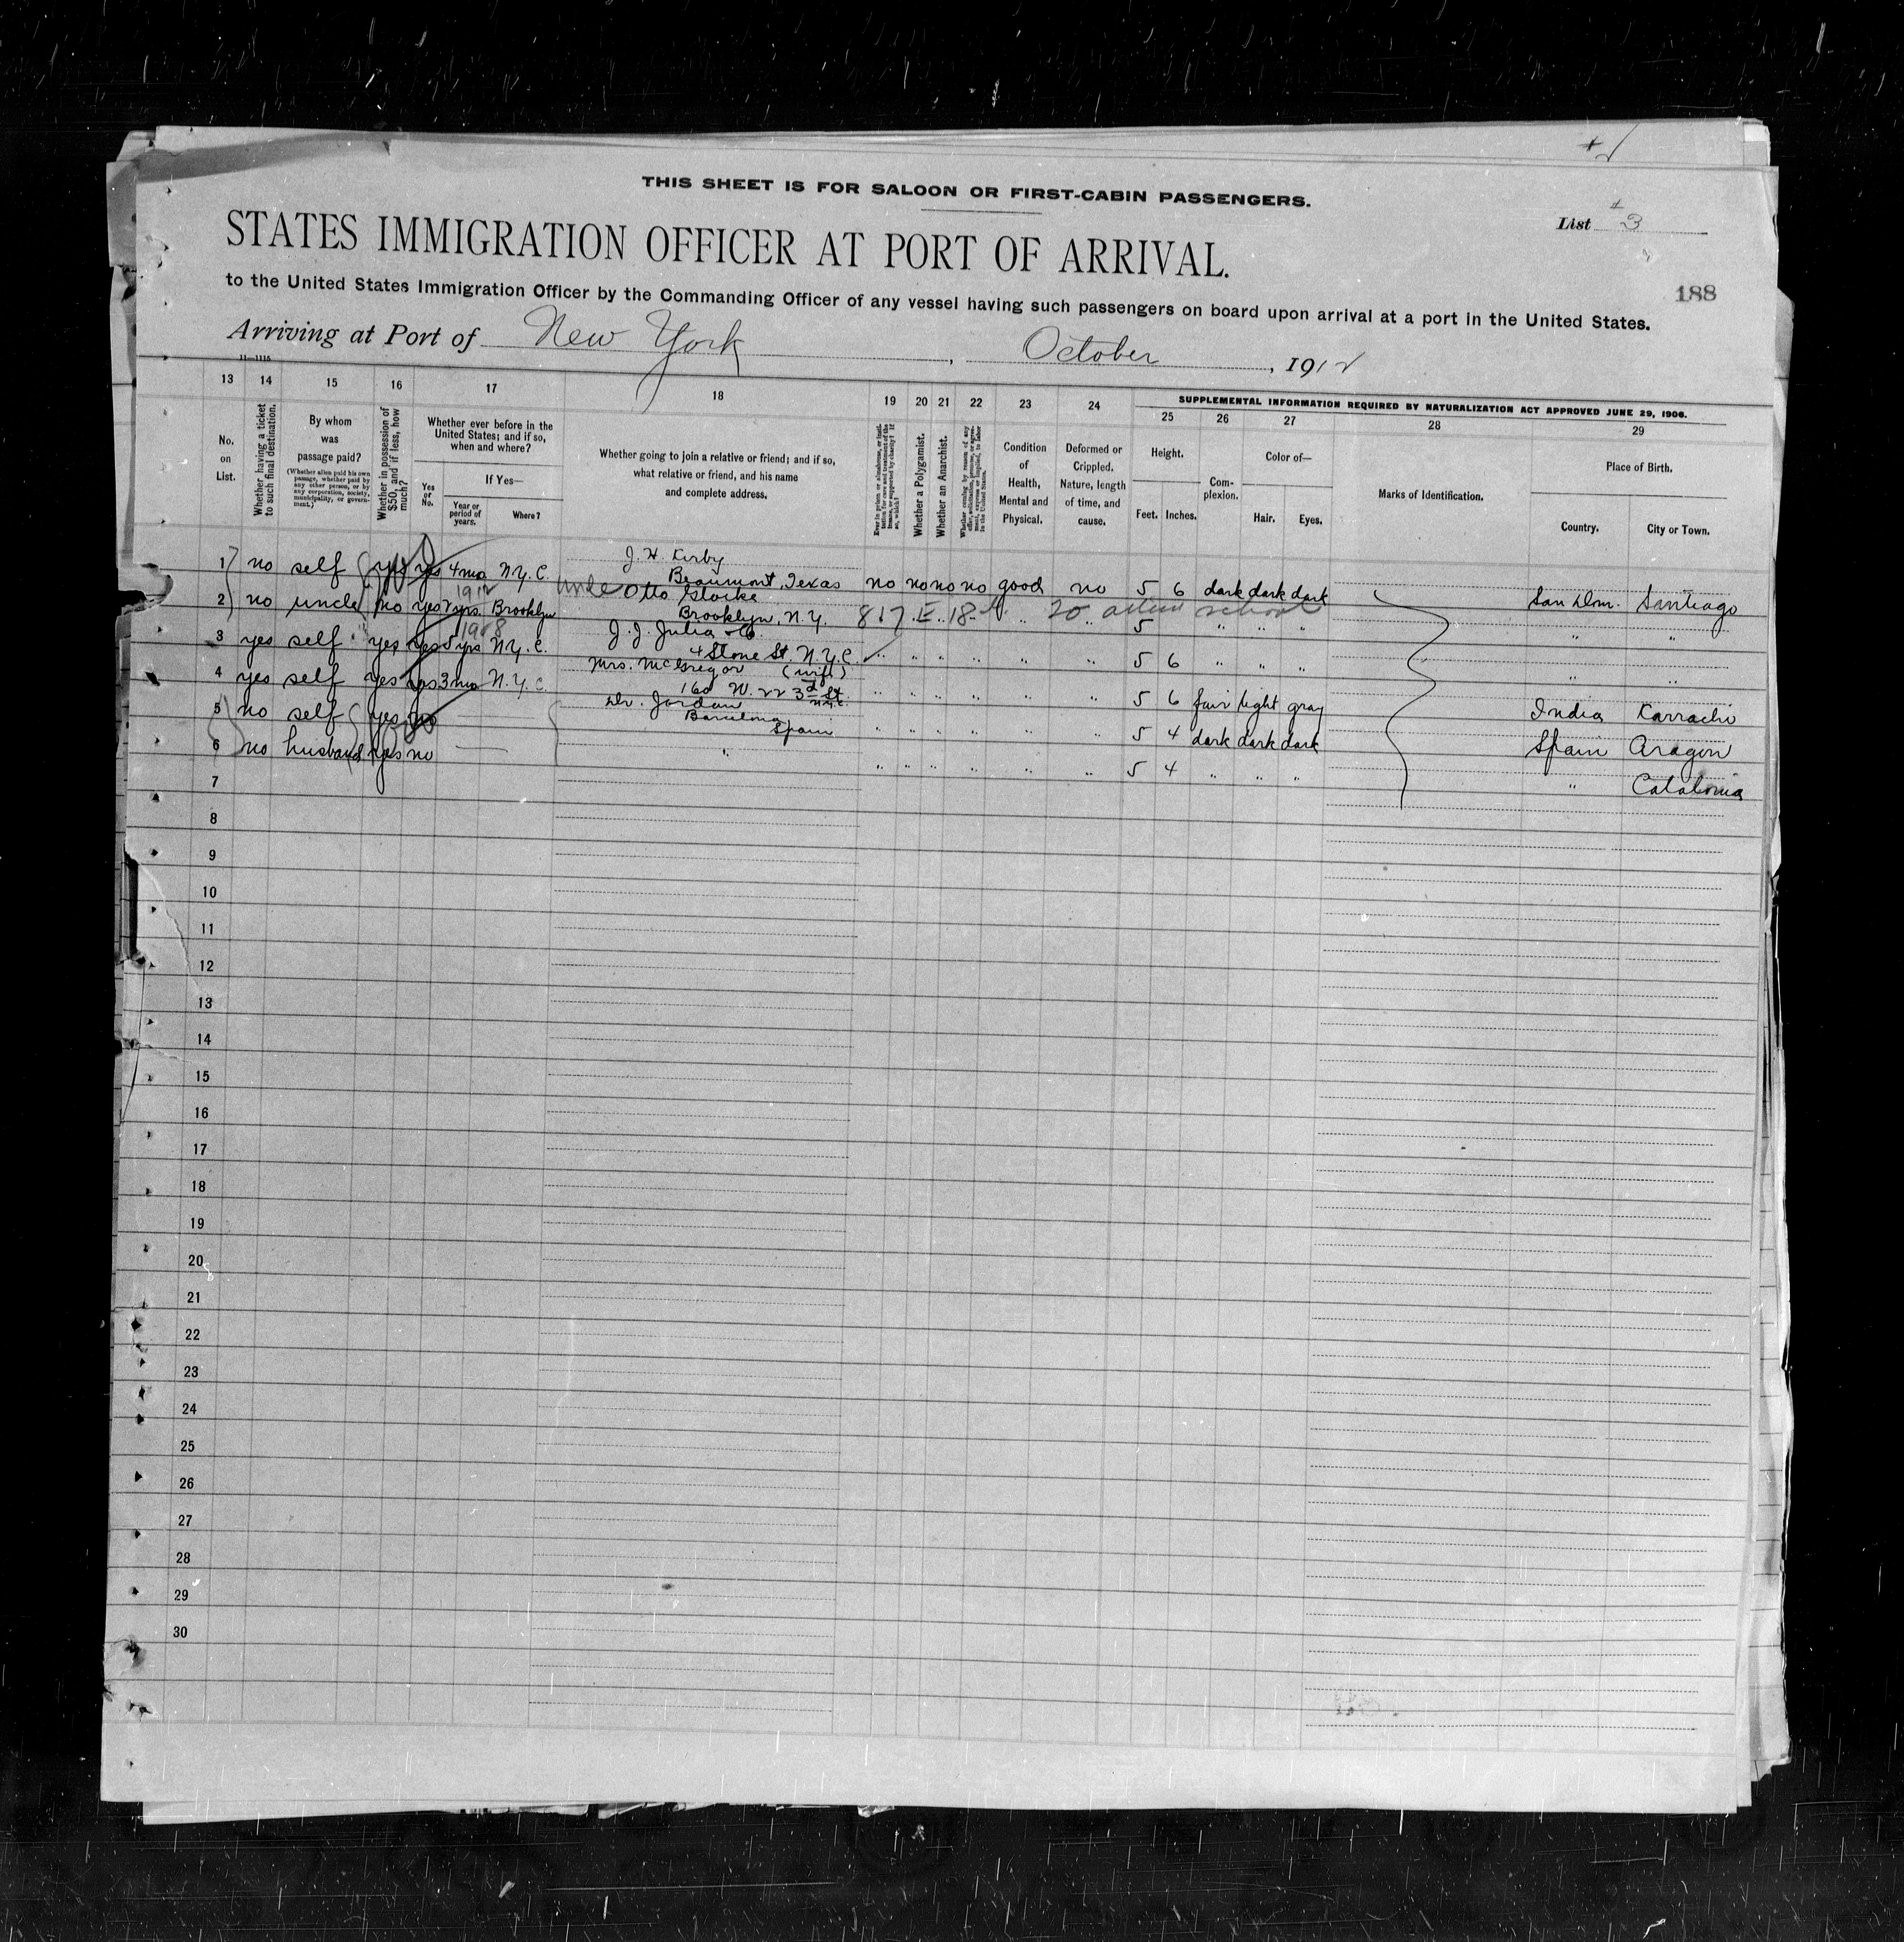 THIS SHEET IS FOR SALOON OR FIRST-CABIN PASSENGERS.
List 3
STATES IMMIGRATION OFFICER AT PORT OF ARRIVAL.
188
to the United States Immigration Officer by the Commanding Officer of any vessel having such passengers on board upon arrival at a port in the United States.
Arriving at Port of New York, October, 1912
11—1115
13 14 15 16 17 18 19 20 21 22 23 24 25 26 27 28 29
SUPPLEMENTAL INFORMATION REQUIRED BY NATURALIZATION ACT APPROVED JUNE 29, 1906.
No. on List.
Whether having a ticket to such final destination.
By whom was passage paid?
(Whether alien paid his own passage, whether paid by any other person, or by any corporation, society, municipality, or government.)
Whether in possession of $50, and if less, how much?
Whether ever before in the United States; and if so, when and where?
Yes or No.
If Yes—
Year or period of years.
Where?
Whether going to join a relative or friend; and if so, what relative or friend, and his name and complete address.
Ever in prison or almshouse, or institution for care and treatment of the insane, or supported by charity? If so, which?
Whether a Polygamist.
Whether an Anarchist.
Whether coming by reason of any offer, solicitation, promise, or agreement, express or implied, to labor in the United States.
Condition of Health, Mental and Physical.
Deformed or Crippled. Nature, length of time, and cause.
Height.
Feet. Inches.
Complexion.
Color of—
Hair. Eyes.
Marks of Identification.
Place of Birth.
Country. City or Town.
1 no self yes yes 4 mo. N.Y.C. J. H. Kirby
Beaumont, Texas no no no no good no 5 6 dark dark dark San Dom. Santiago
1912
2 no uncle no yes 2 yrs. Brooklyn uncle Otto
Brooklyn, N.Y. 817 E. 18 " 20 school 5 " " " " "
1908
3 yes self yes yes 5 yrs N.Y.C. J. J. Julia & Co.
4 Stone St. N.Y.C. " " " " " " 5 6 " " " " "
4 yes self yes yes 3 mo. N.Y.C. Mrs. McGregor (wife)
160 W. 223d St. N.Y.C. " " " " " " 5 6 fair light gray India Karrachi
5 no self yes no Dr. Jordan
Barcelona
Spain " " " " " " 5 4 dark dark dark Spain Aragon
6 no husband yes no — " " " " " " " 5 4 " " " " Catalonia
7
8
9
10
11
12
13
14
15
16
17
18
19
20
21
22
23
24
25
26
27
28
29
30